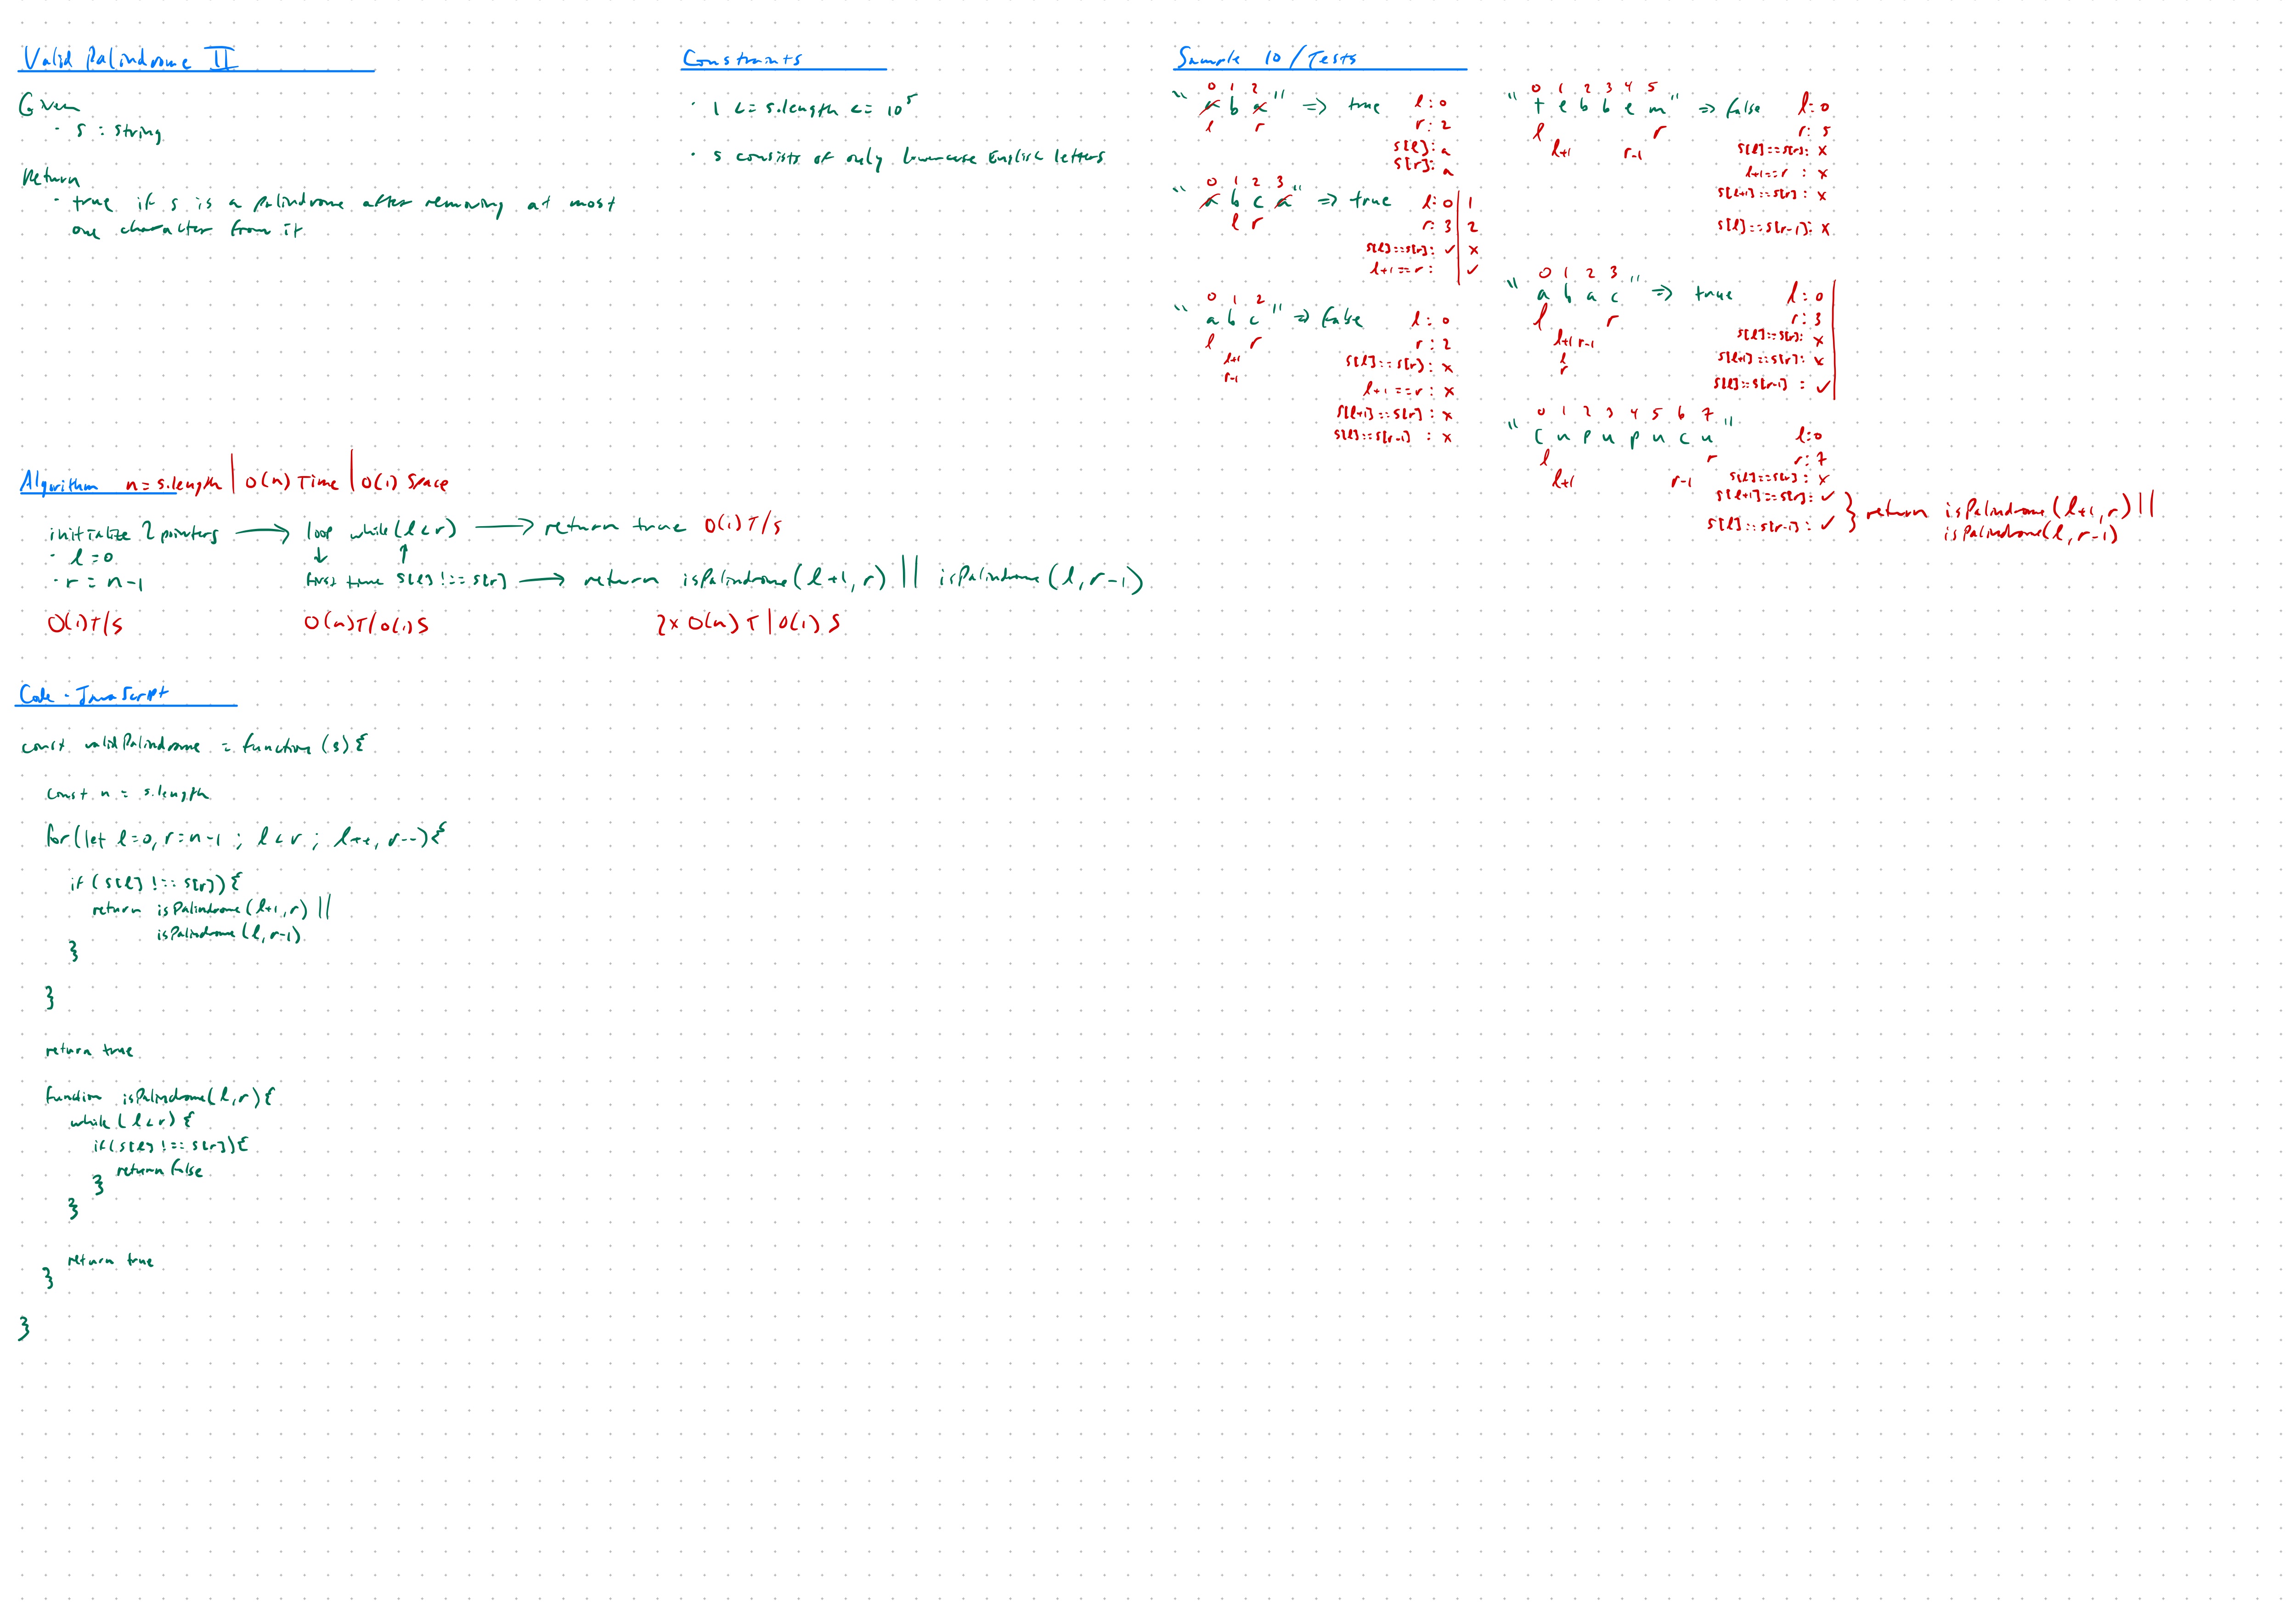 Valid Palindrome II
Given
· s : string
Return
· true if s is a palindrome after removing at most
one character from it
Constraints
· 1 <= s.length <= 10^5
· s consists of only lowercase English letters
Sample IO / Tests
0 1 2
"a b a" => true l: 0
l r r: 2
s[l]: a
s[r]: a
0 1 2 3
"a b c a" => true l: 0 | 1
l r r: 3 | 2
s[l]==s[r]: ✓ | x
l+1==r: | ✓
0 1 2
"a b c" => false l: 0
l r r: 2
l+1 s[l]==s[r]: x
r-1 l+1==r: x
s[l+1]==s[r]: x
s[l]==s[r-1] : x
0 1 2 3 4 5
"t e b b e m" => false l: 0
l r r: 5
l+1 r-1 s[l]==s[r]: x
l+1==r : x
s[l+1]==s[r]: x
s[l]==s[r-1]: x
0 1 2 3
"a b a c" => true l: 0
l r r: 3
l+1 r-1 s[l]==s[r]: x
l s[l+1]==s[r]: x
r s[l]==s[r-1] : ✓
0 1 2 3 4 5 6 7
"c u p u p u c u" l: 0
l r r: 7
l+1 r-1 s[l]==s[r]: x
s[l+1]==s[r]: ✓ } return isPalindrome(l+1, r) ||
s[l]==s[r-1]: ✓ isPalindrome(l, r-1)
Algorithm n = s.length | O(n) Time | O(1) Space
initialize 2 pointers → loop while(l<r) → return true O(1) T/S
· l = 0 ↓ ↑
· r = n-1 first time s[l] !== s[r] → return isPalindrome(l+1, r) || isPalindrome(l, r-1)
O(1) T/S O(n) T/O(1) S 2x O(n) T | O(1) S
Code - JavaScript
const validPalindrome = function (s) {
const n = s.length
for(let l=0, r=n-1 ; l<r ; l++, r--){
if (s[l] !== s[r]) {
return isPalindrome(l+1, r) ||
isPalindrome(l, r-1)
}
}
return true
function isPalindrome(l, r) {
while (l<r) {
if(s[l] !== s[r]){
return false
}
}
return true
}
}